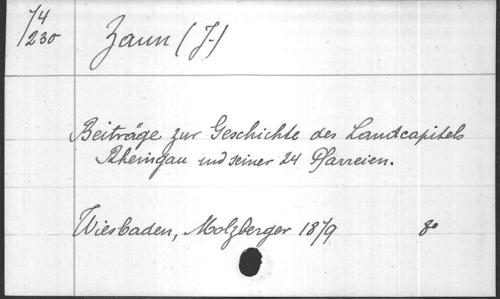 74
230
Zaun (J.)
Beiträge zur Geschichte des Landcapitels
Rheingau und seiner 24 Pfarreien.
Wiesbaden, Molzberger 1879 8o